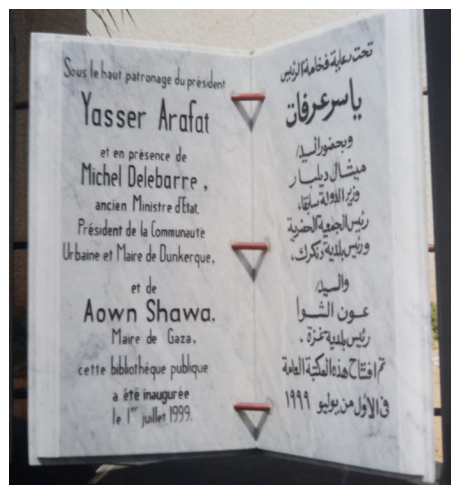 Sous le haut patronage du président
Yasser Arafat
et en présence de
Michel Delebarre,
ancien Ministre d'Etat,
Président de la Communauté
Urbaine et Maire de Dunkerque,
et de
Aown Shawa,
Maire de Gaza,
cette bibliothèque publique
a été inaugurée
le 1er juillet 1999.
تحت رعاية فخامة الرئيس
ياسر عرفات
وبحضور السيد/
ميشال ديلبار
وزير الدولة سابقا،
رئيس الجمعية الحضرية
ورئيس بلدية دنكرك،
والسيد/
عون الشوا
رئيس بلدية غزة،
تم افتتاح هذه المكتبة العامة
في الأول من يوليو ١٩٩٩